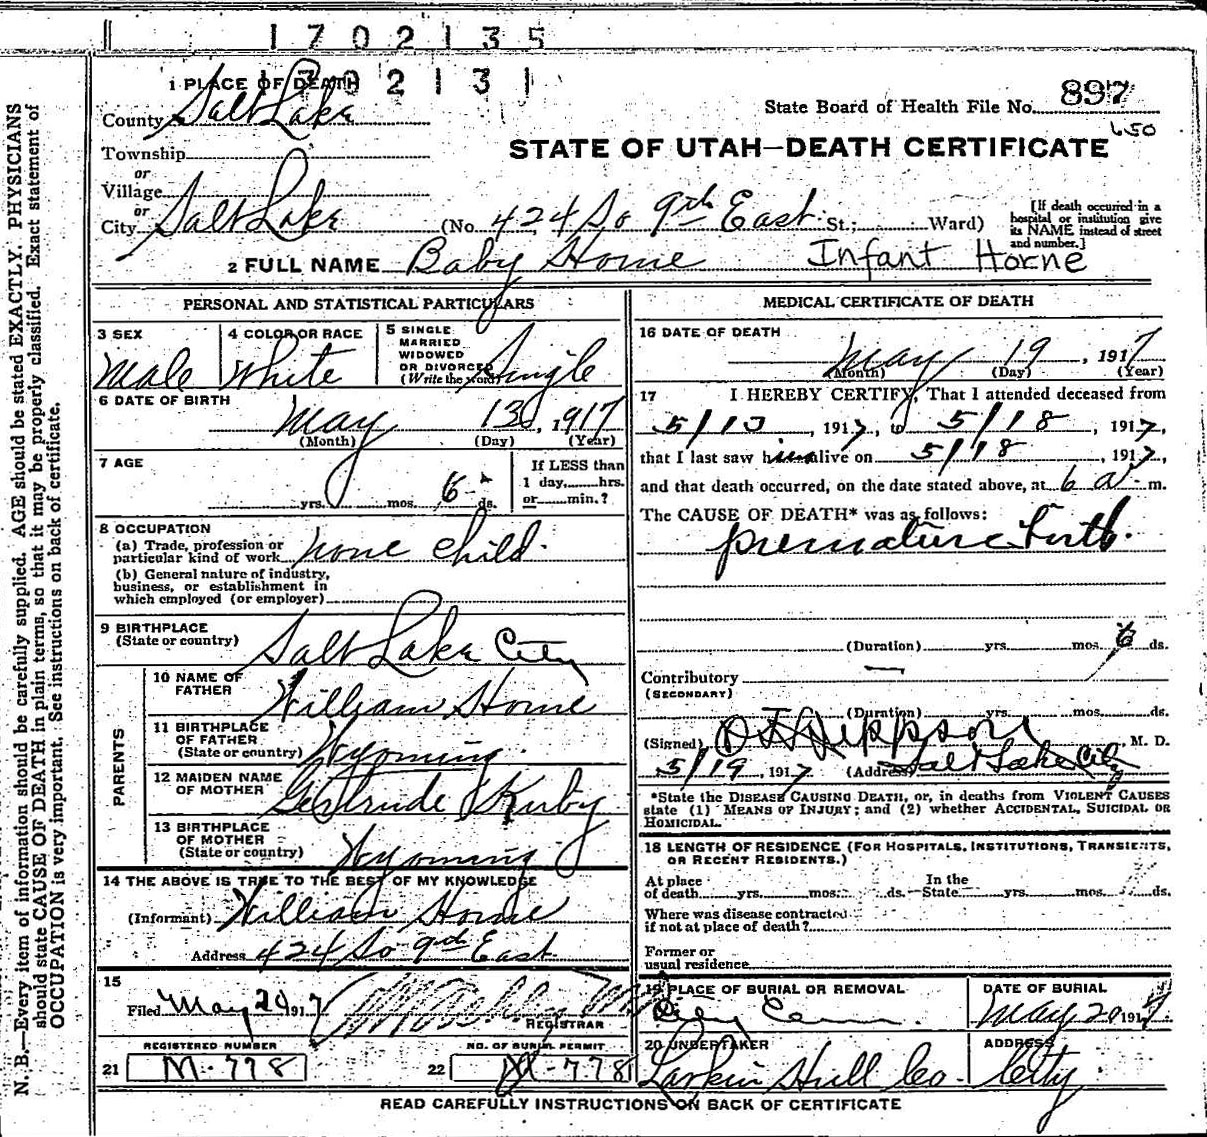 1702135
1702131
1 PLACE OF DEATH
County Salt Lake
State Board of Health File No. 897
650
Township
or
Village
or
City Salt Lake
STATE OF UTAH—DEATH CERTIFICATE
(No. 424 So 9th East St.; Ward)
[If death occurred in a hospital or institution give its NAME instead of street and number.]
2 FULL NAME Baby Horne Infant Horne
PERSONAL AND STATISTICAL PARTICULARS
3 SEX Male
4 COLOR OR RACE White
5 SINGLE MARRIED WIDOWED OR DIVORCED (Write the word) Single
6 DATE OF BIRTH
May 13, 1917
(Month) (Day) (Year)
7 AGE
yrs. mos. 6 ds.
If LESS than
1 day, hrs.
or min.?
8 OCCUPATION
(a) Trade, profession or
particular kind of work none child
(b) General nature of industry,
business, or establishment in
which employed (or employer)
9 BIRTHPLACE
(State or country) Salt Lake City
PARENTS
10 NAME OF
FATHER William Horne
11 BIRTHPLACE
OF FATHER
(State or country) Wyoming
12 MAIDEN NAME
OF MOTHER Gertrude Kirby
13 BIRTHPLACE
OF MOTHER
(State or country) Wyoming
14 THE ABOVE IS TRUE TO THE BEST OF MY KNOWLEDGE
(Informant) William Horne
Address 424 So 9th East
15
Filed May 20 1917
REGISTRAR
REGISTERED NUMBER
21 M-778
NO. OF BURIAL PERMIT
22 M-778
MEDICAL CERTIFICATE OF DEATH
16 DATE OF DEATH
May 19, 1917
(Month) (Day) (Year)
17 I HEREBY CERTIFY, That I attended deceased from
5/13, 1917, to 5/18, 1917,
that I last saw him alive on 5/18, 1917,
and that death occurred, on the date stated above, at 6 a. m.
The CAUSE OF DEATH* was as follows:
premature birth.
(Duration) yrs. mos. 6 ds.
Contributory
(SECONDARY)
(Duration) yrs. mos. ds.
(Signed) Jeppson, M. D.
5/19, 1917 (Address) Salt Lake City
*State the DISEASE CAUSING DEATH, or, in deaths from VIOLENT CAUSES
state (1) MEANS OF INJURY; and (2) whether ACCIDENTAL, SUICIDAL OR
HOMICIDAL.
18 LENGTH OF RESIDENCE (FOR HOSPITALS, INSTITUTIONS, TRANSIENTS,
OR RECENT RESIDENTS.)
At place
of death yrs. mos. ds.
In the
State yrs. mos. ds.
Where was disease contracted
if not at place of death?
Former or
usual residence
19 PLACE OF BURIAL OR REMOVAL
City Cem.
DATE OF BURIAL
May 20 1917
20 UNDERTAKER
Larkin Hull Co.
ADDRESS
City
READ CAREFULLY INSTRUCTIONS ON BACK OF CERTIFICATE
N. B.—Every item of information should be carefully supplied. AGE should be stated EXACTLY. PHYSICIANS
should state CAUSE OF DEATH in plain terms, so that it may be properly classified. Exact statement of
OCCUPATION is very important. See instructions on back of certificate.